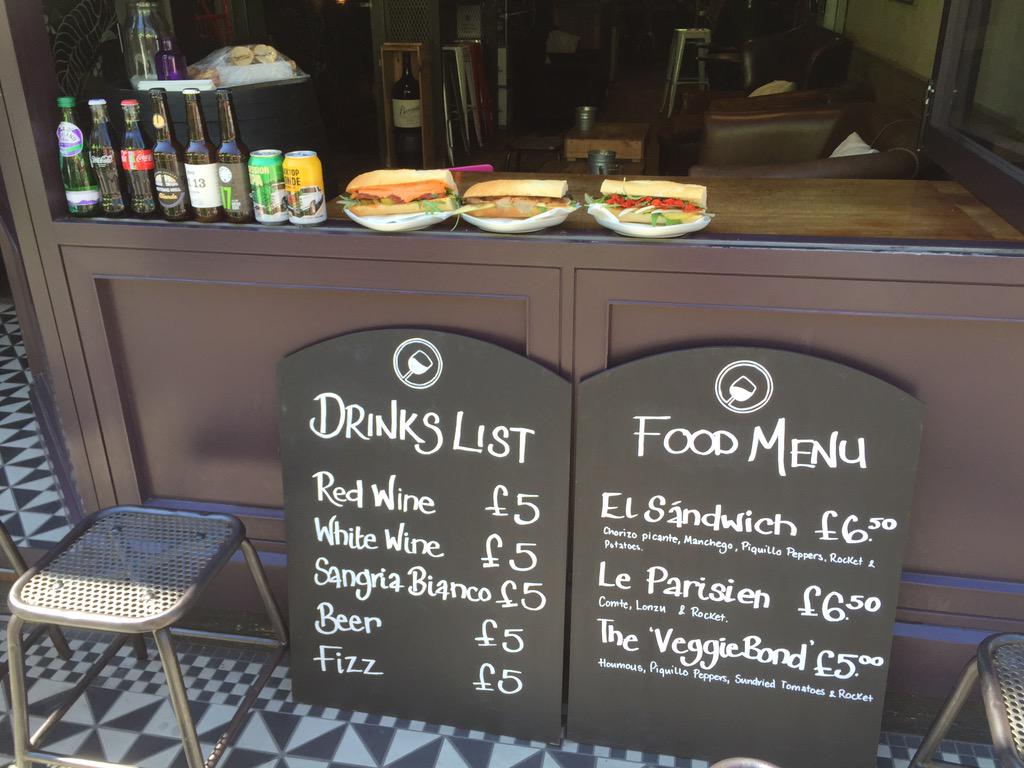 Coca-Cola
13
17
DRINKS LIST
Red Wine £5
White Wine £5
Sangria Bianco £5
Beer £5
Fizz £5
FOOD MENU
El Sándwich £6.50
Chorizo picante, Manchego, Piquillo Peppers, Rocket &
Potatoes.
Le Parisien £6.50
Comte, Lonzu & Rocket.
The 'VeggieBond' £5.00
Houmous, Piquillo Peppers, Sundried Tomatoes & Rocket